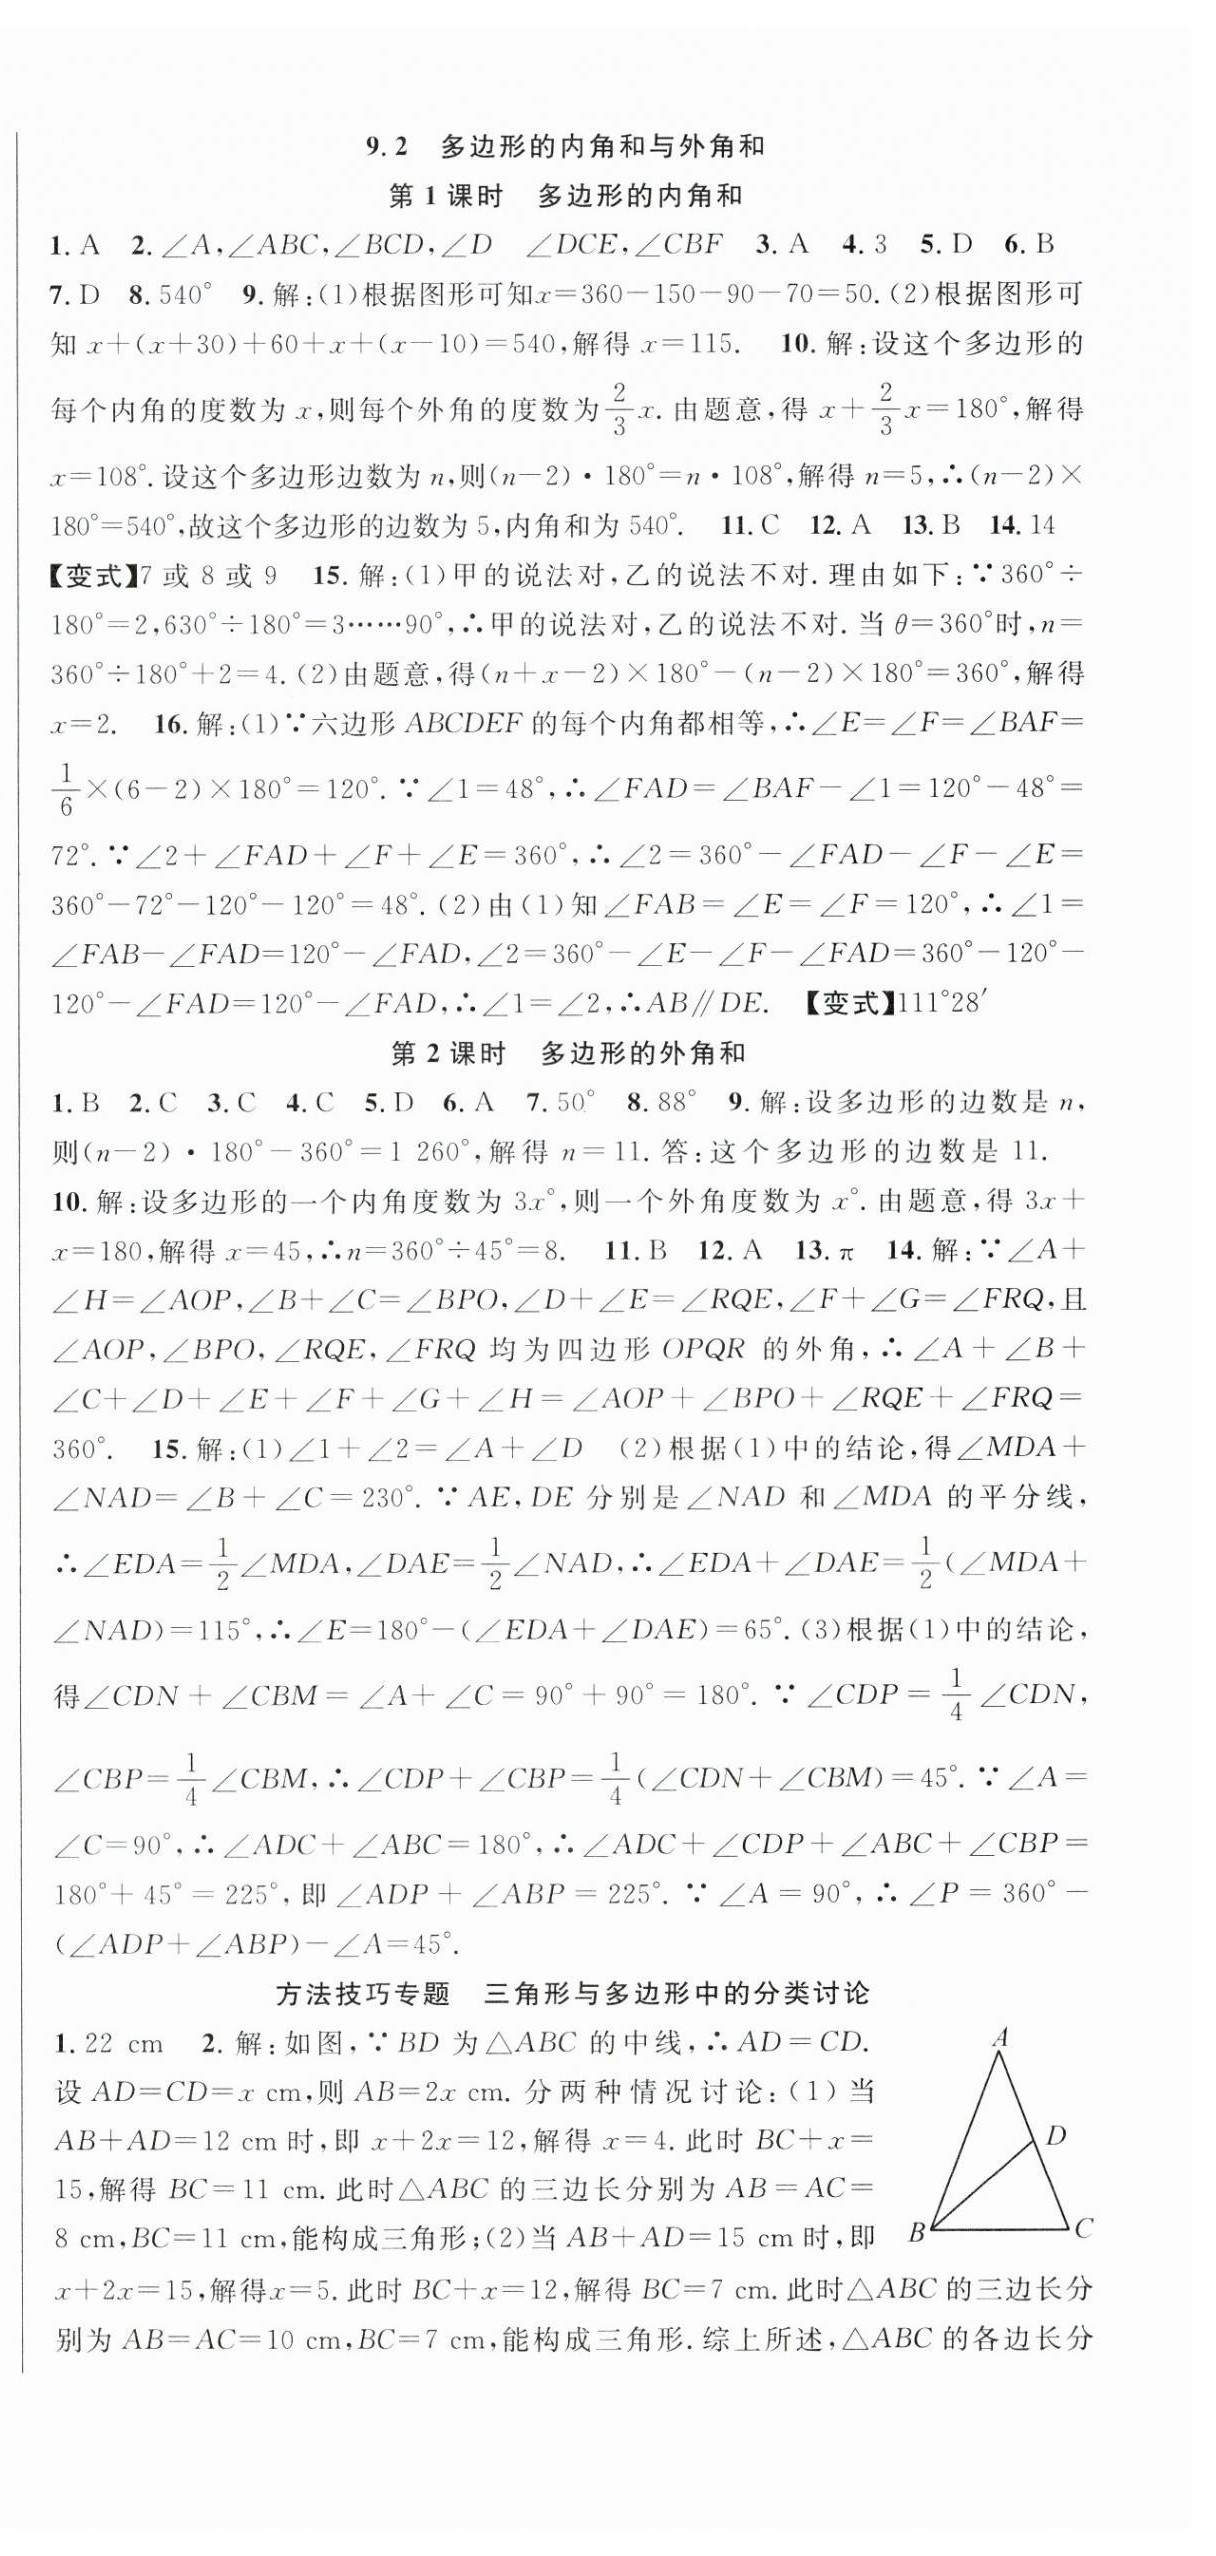 9.2 多边形的内角和与外角和
第1课时 多边形的内角和
1. A 2. ∠A,∠ABC,∠BCD,∠D ∠DCE,∠CBF 3. A 4. 3 5. D 6. B
7. D 8. 540° 9. 解:(1)根据图形可知x=360-150-90-70=50.(2)根据图形可
知 x+(x+30)+60+x+(x-10)=540,解得 x=115. 10. 解:设这个多边形的
每个内角的度数为 x,则每个外角的度数为2/3x. 由题意,得 x+2/3x=180°,解得
x=108°.设这个多边形边数为 n,则(n-2)·180°=n·108°,解得 n=5,∴(n-2)×
180°=540°,故这个多边形的边数为 5,内角和为 540°. 11. C 12. A 13. B 14. 14
【变式】7 或 8 或 9 15. 解:(1)甲的说法对,乙的说法不对. 理由如下:∵360°÷
180°=2,630°÷180°=3……90°,∴甲的说法对,乙的说法不对. 当 θ=360°时,n=
360°÷180°+2=4.(2)由题意,得(n+x-2)×180°-(n-2)×180°=360°,解得
x=2. 16. 解:(1)∵六边形 ABCDEF 的每个内角都相等,∴∠E=∠F=∠BAF=
1/6×(6-2)×180°=120°. ∵∠1=48°,∴∠FAD=∠BAF-∠1=120°-48°=
72°. ∵∠2+∠FAD+∠F+∠E=360°,∴∠2=360°-∠FAD-∠F-∠E=
360°-72°-120°-120°=48°.(2)由(1)知∠FAB=∠E=∠F=120°,∴∠1=
∠FAB-∠FAD=120°-∠FAD,∠2=360°-∠E-∠F-∠FAD=360°-120°-
120°-∠FAD=120°-∠FAD,∴∠1=∠2,∴AB∥DE. 【变式】111°28′
第2课时 多边形的外角和
1. B 2. C 3. C 4. C 5. D 6. A 7. 50° 8. 88° 9. 解:设多边形的边数是 n,
则(n-2)·180°-360°=1 260°,解得 n=11. 答:这个多边形的边数是 11.
10. 解:设多边形的一个内角度数为 3x°,则一个外角度数为 x°. 由题意,得 3x+
x=180,解得 x=45,∴n=360°÷45°=8. 11. B 12. A 13. π 14. 解:∵∠A+
∠H=∠AOP,∠B+∠C=∠BPO,∠D+∠E=∠RQE,∠F+∠G=∠FRQ,且
∠AOP,∠BPO,∠RQE,∠FRQ 均为四边形 OPQR 的外角,∴∠A+∠B+
∠C+∠D+∠E+∠F+∠G+∠H=∠AOP+∠BPO+∠RQE+∠FRQ=
360°. 15. 解:(1)∠1+∠2=∠A+∠D (2)根据(1)中的结论,得∠MDA+
∠NAD=∠B+∠C=230°. ∵AE,DE 分别是∠NAD 和∠MDA 的平分线,
∴∠EDA=1/2∠MDA,∠DAE=1/2∠NAD,∴∠EDA+∠DAE=1/2(∠MDA+
∠NAD)=115°,∴∠E=180°-(∠EDA+∠DAE)=65°.(3)根据(1)中的结论,
得∠CDN+∠CBM=∠A+∠C=90°+90°=180°. ∵∠CDP=1/4∠CDN,
∠CBP=1/4∠CBM,∴∠CDP+∠CBP=1/4(∠CDN+∠CBM)=45°. ∵∠A=
∠C=90°,∴∠ADC+∠ABC=180°,∴∠ADC+∠CDP+∠ABC+∠CBP=
180°+45°=225°,即∠ADP+∠ABP=225°. ∵∠A=90°,∴∠P=360°-
(∠ADP+∠ABP)-∠A=45°.
方法技巧专题 三角形与多边形中的分类讨论
1. 22 cm 2. 解:如图,∵BD 为△ABC 的中线,∴AD=CD.
设 AD=CD=x cm,则 AB=2x cm. 分两种情况讨论:(1)当
AB+AD=12 cm 时,即 x+2x=12,解得 x=4. 此时 BC+x=
15,解得 BC=11 cm. 此时△ABC 的三边长分别为 AB=AC=
8 cm,BC=11 cm,能构成三角形;(2)当 AB+AD=15 cm 时,即
x+2x=15,解得x=5. 此时 BC+x=12,解得 BC=7 cm. 此时△ABC 的三边长分
别为 AB=AC=10 cm,BC=7 cm,能构成三角形. 综上所述,△ABC 的各边长分
A
D
B
C